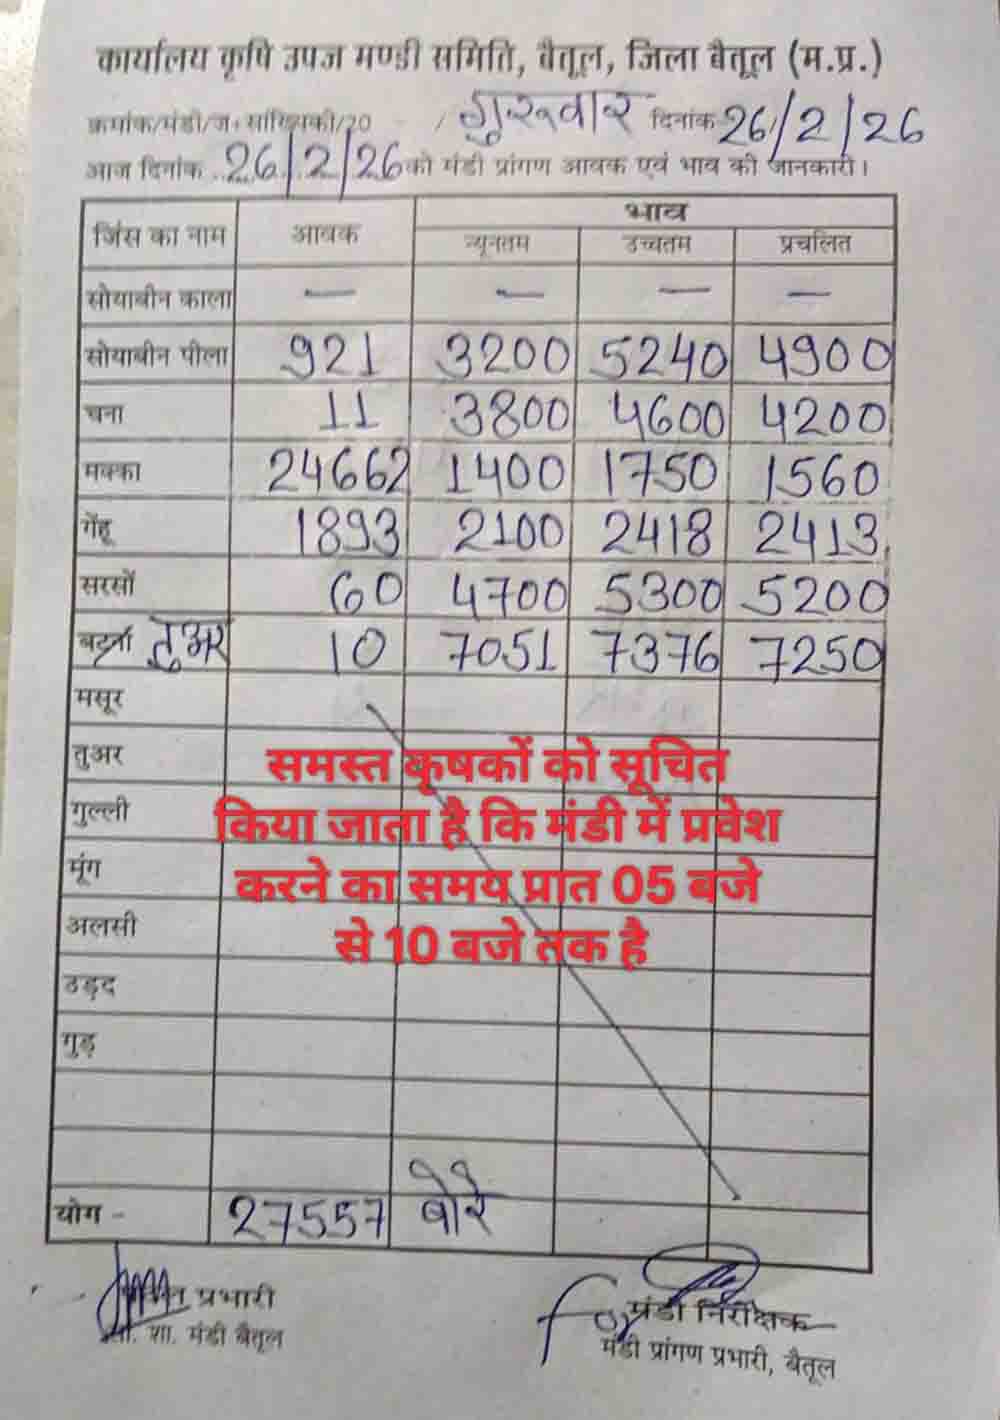 कार्यालय कृषि उपज मण्डी समिति, बैतूल, जिला बैतूल (म.प्र.)
क्रमांक/मंडी/ज. सांख्यिकी/20 / गुरूवार दिनांक 26/2/26
आज दिनांक 26/2/26 को मंडी प्रांगण आवक एवं भाव की जानकारी।
जिंस का नाम आवक भाव
न्यूनतम उच्चतम प्रचलित
सोयाबीन काला — — — —
सोयाबीन पीला 921 3200 5240 4900
चना 11 3800 4600 4200
मक्का 24662 1400 1750 1560
गेंहू 1893 2100 2418 2413
सरसों 60 4700 5300 5200
तुअर 10 7051 7376 7250
मसूर
तुअर
गुल्ली
मूंग
अलसी
उड़द
गुड़
समस्त कृषकों को सूचित
किया जाता है कि मंडी में प्रवेश
करने का समय प्रात 05 बजे
से 10 बजे तक है
योग - 27557 बोरे
प्रभारी
सां. शा. मंडी बैतूल
मंडी निरीक्षक
मंडी प्रांगण प्रभारी, बैतूल